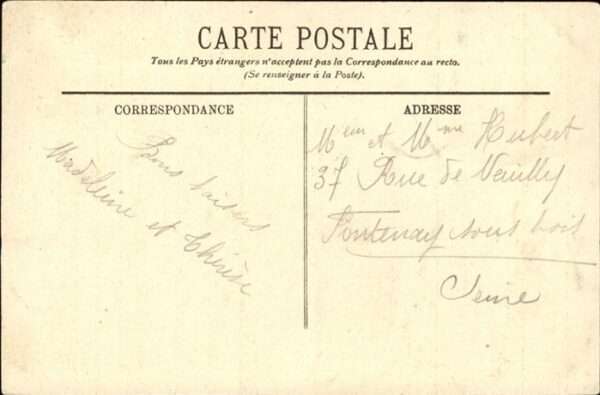 CARTE POSTALE
Tous les Pays étrangers n'acceptent pas la Correspondance au recto.
(Se renseigner à la Poste).
CORRESPONDANCE
Bons baisers
Madeleine et Thérèse
ADRESSE
Meur et Mme Hubert
37 Rue de Neuilly
Fontenay sous bois
Seine